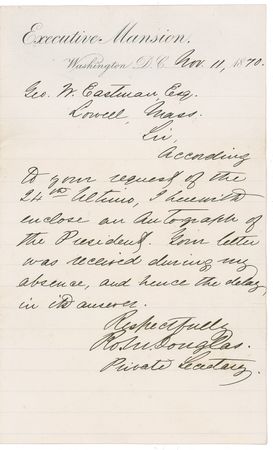 Executive Mansion,
Washington, D.C. Nov. 11, 1870.
Geo. W. Eastman Esq.
Lowell, Mass.
Sir,
According
to your request of the
24th Ultimo, I herewith
enclose an Autograph of
the President. Your letter
was received during my
absence, and hence the delay
in its answer.
Respectfully
Ro. M. Douglas.
Private Secretary.